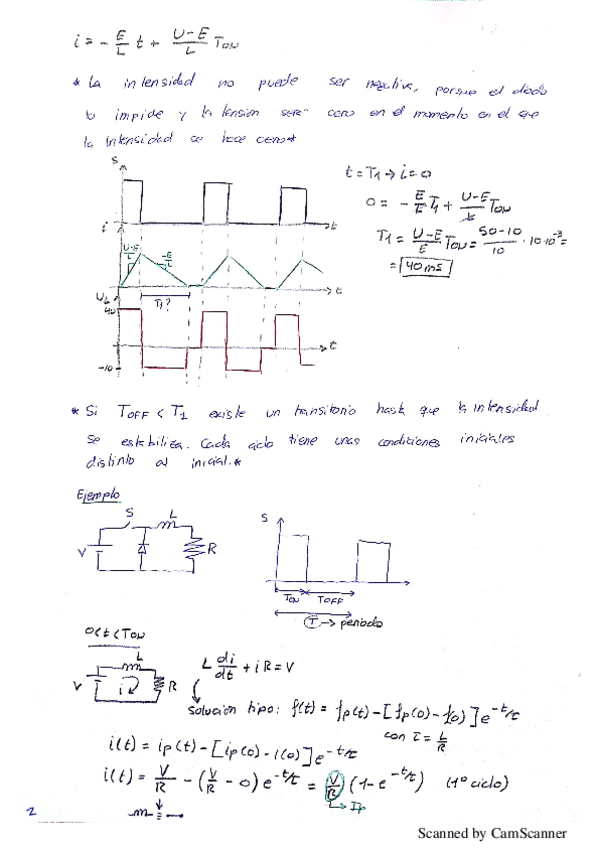 i = - E/L t + U-E/L TON
* La intensidad no puede ser negativa, porque el diodo
lo impide y la tension será cero en el momento en el que
la intensidad se hace cero *
S
t
i
U-E/L
-E/L
t
T1?
UL
40
-10
t
t = T1 → i = 0
0 = - E/L T1 + U-E/L TON
T1 = U-E/E TON = 50-10/10 · 10·10^-3 =
= 40ms
* Si TOFF < T1 existe un transitorio hasta que la intensidad
se estabiliza. Cada ciclo tiene unas condiciones iniciales
distinto al inicial. *
Ejemplo
S L
V R
S
TON TOFF
T → período
0<t<TON
L
V i R
L di/dt + iR = V
Solución tipo: f(t) = fp(t) - [fp(0) - f(0)] e^-t/τ
con τ = L/R
i(t) = ip(t) - [ip(0) - i(0)] e^-t/τ
i(t) = V/R - (V/R - 0) e^-t/τ = V/R (1 - e^-t/τ) (1º ciclo)
→ Ip
2
Scanned by CamScanner